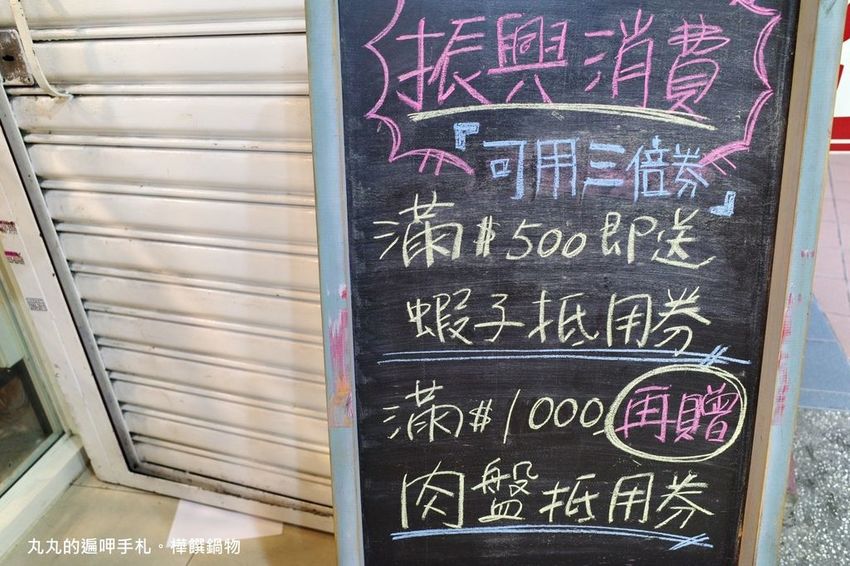 振興消費
『可用三倍券』
滿$500即送
蝦子抵用券
滿$1000再贈
肉盤抵用券
丸丸的遍呷手札。樺饌鍋物